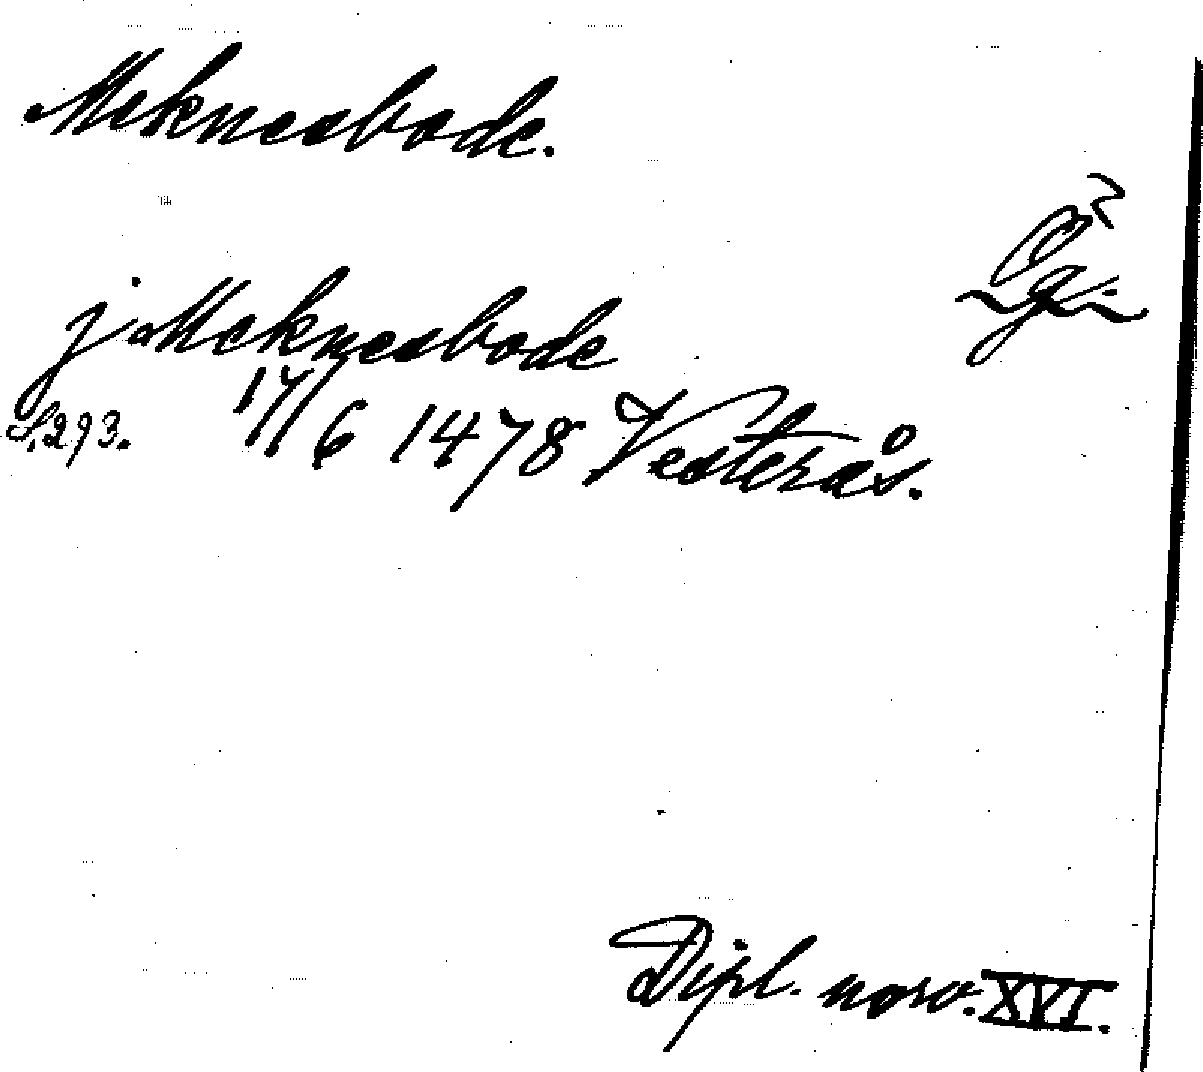 Meknesbode.
?
Ög.
j Meknesbode
S. 293. 17/6 1478 Vesterås.
Dipl. norv. XVI.